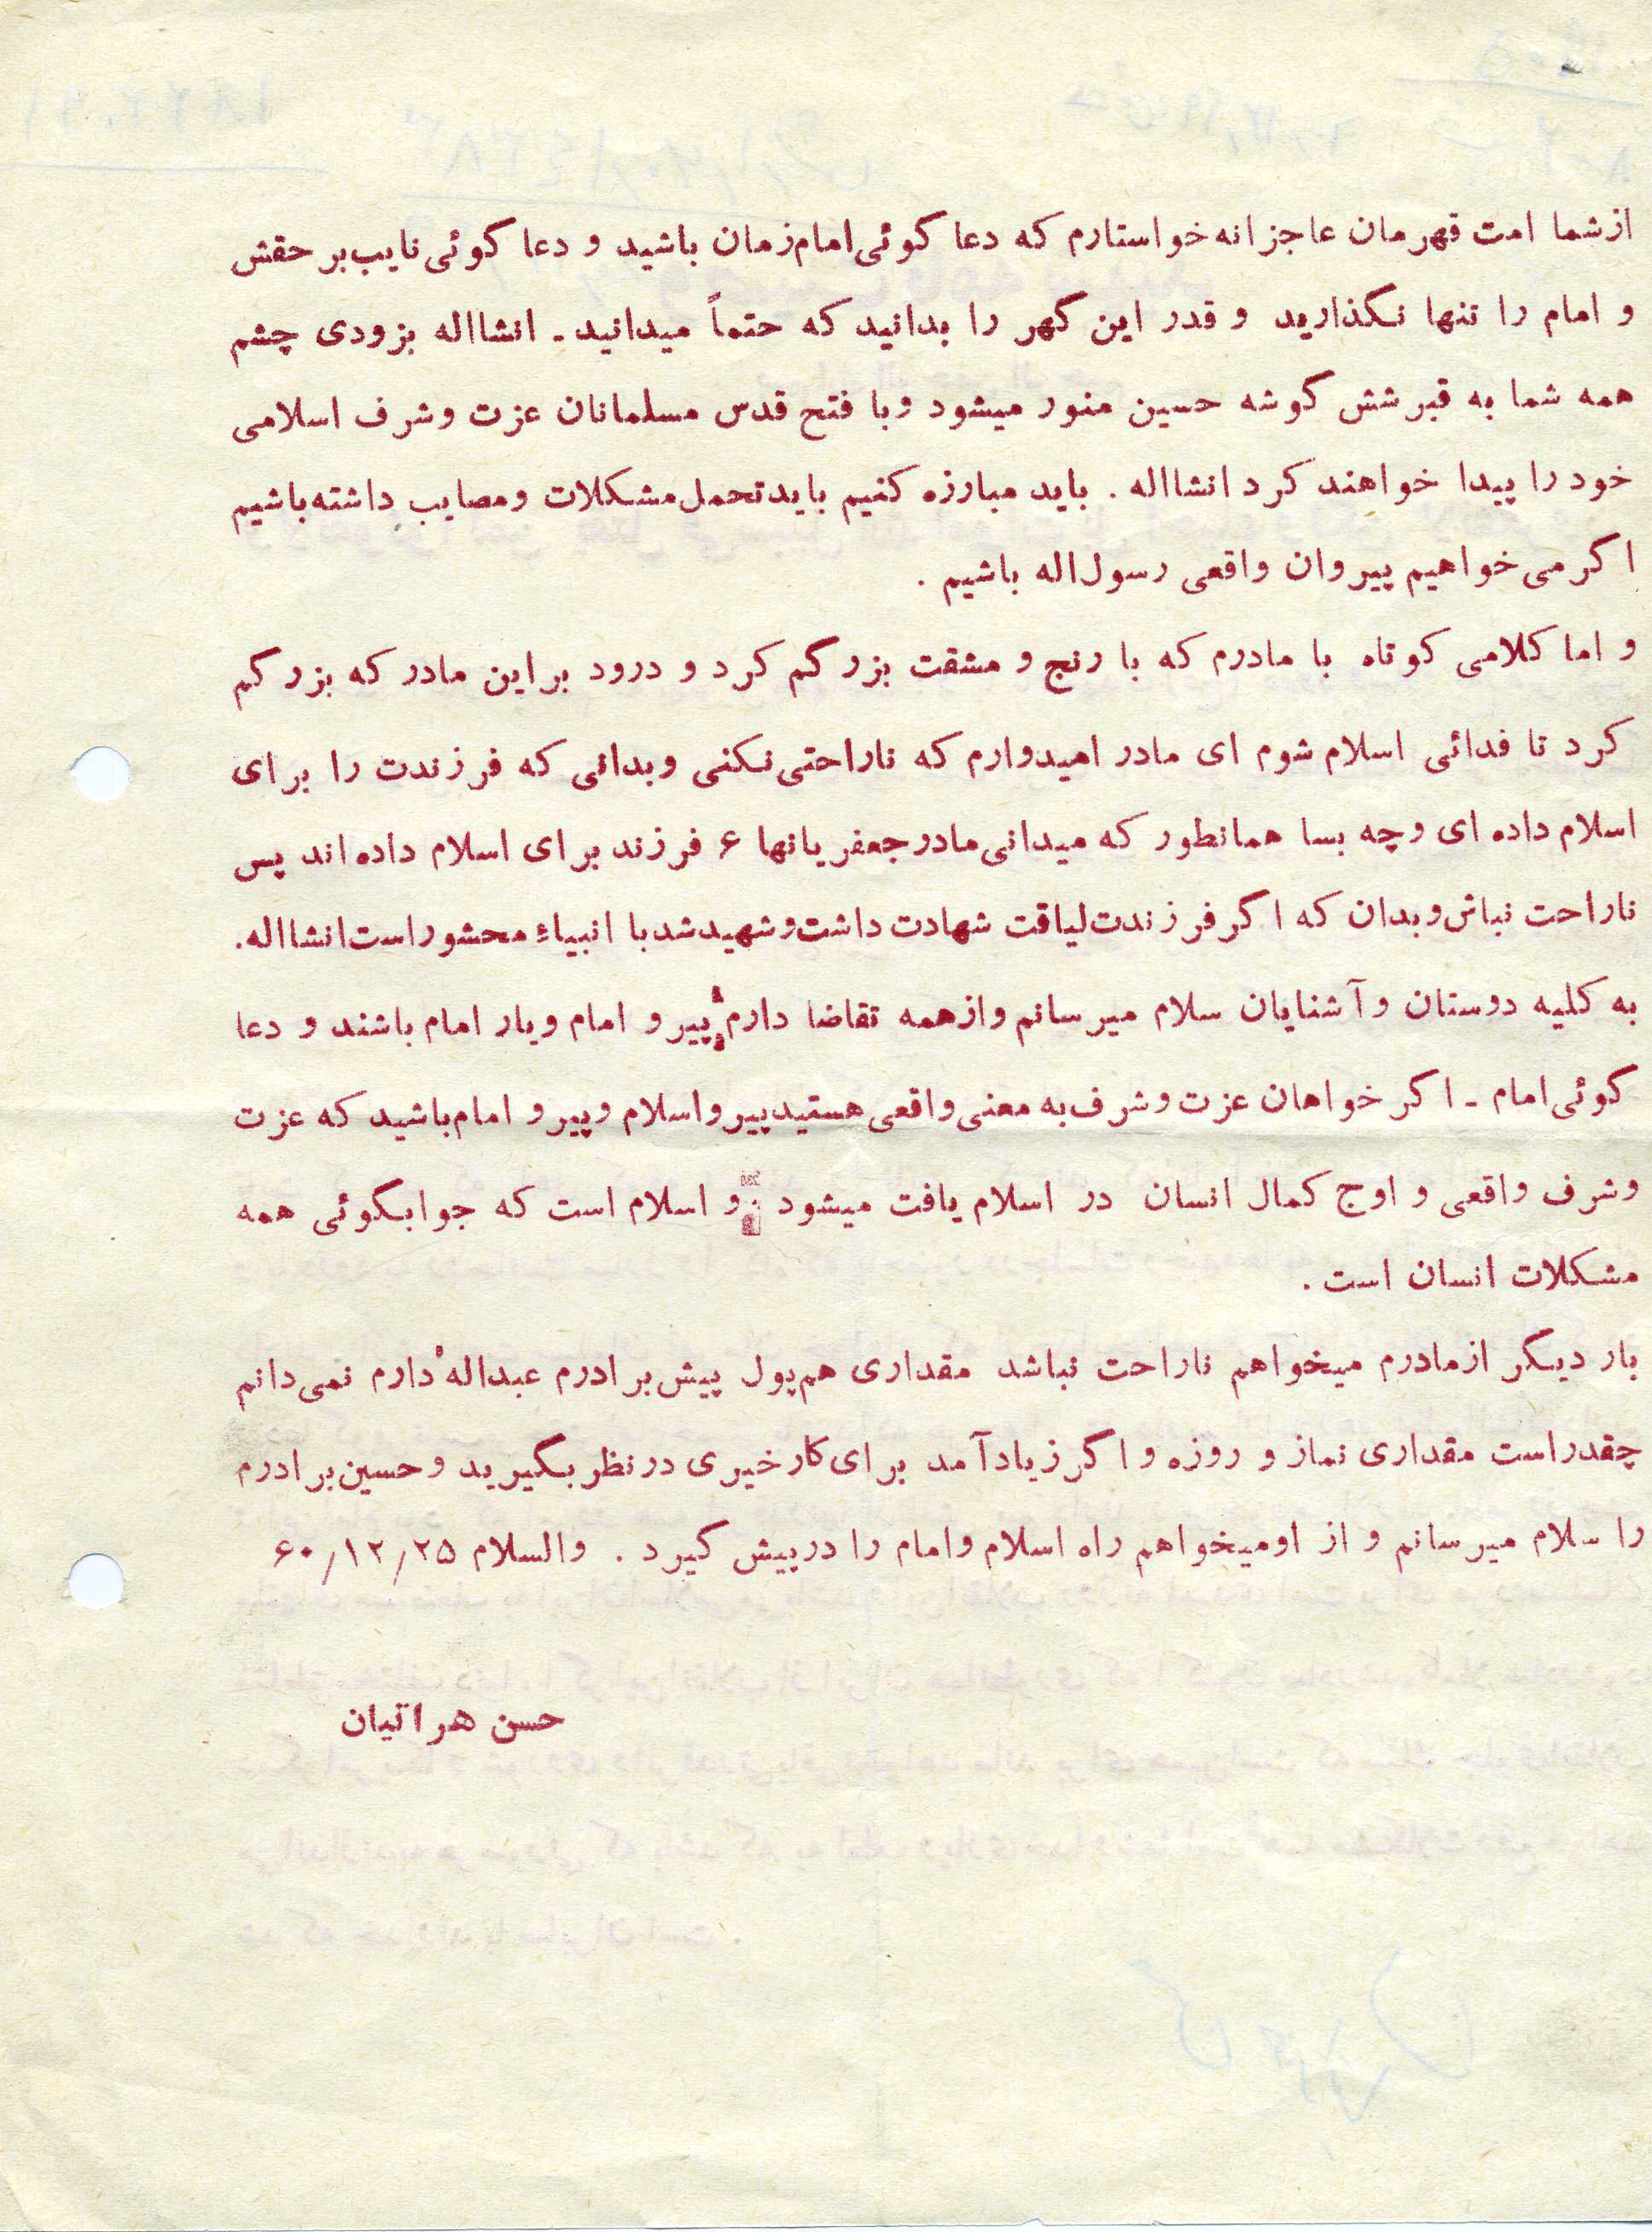 ازشما امت قهرمان عاجزانه خواستارم که دعا گوئی امام زمان باشید و دعا گوئی نایب بر حقش
و امام را تنها نگذارید و قدر این گهر را بدانید که حتماً میدانید ـ انشااله بزودی چشم
همه شما به قبر شش گوشه حسین منور میشود وبا فتح قدس مسلمانان عزت وشرف اسلامی
خود را پیدا خواهند کرد انشااله . باید مبارزه کنیم باید تحمل مشکلات ومصایب داشته باشیم
اگر می خواهیم پیروان واقعی رسول اله باشیم .
و اما کلامی کوتاه با مادرم که با رنج و مشقت بزرگم کرد و درود براین مادر که بزرگم
کرد تا فدائی اسلام شوم ای مادر امیدوارم که ناراحتی نکنی وبدانی که فرزندت را برای
اسلام داده ای وچه بسا همانطور که میدانی مادر جعفریانها ۶ فرزند برای اسلام داده اند پس
ناراحت نباش وبدان که اگر فرزندت لیاقت شهادت داشت وشهید شد با انبیاء محشور است انشااله.
به کلیه دوستان وآشنایان سلام میرسانم وازهمه تقاضا دارم پیرو امام ویار امام باشند و دعا
گوئی امام ـ اگر خواهان عزت وشرف به معنی واقعی هستید پیرو اسلام وپیرو امام باشید که عزت
وشرف واقعی و اوج کمال انسان در اسلام یافت میشود و اسلام است که جوابگوئی همه
مشکلات انسان است .
بار دیگر ازمادرم میخواهم ناراحت نباشد مقداری هم پول پیش برادرم عبداله دارم نمی دانم
چقدر است مقداری نماز و روزه و اگر زیاد آمد برای کار خیری در نظر بگیرید وحسین برادرم
را سلام میرسانم و از اومیخواهم راه اسلام وامام را درپیش گیرد . والسلام ۶۰/۱۲/۲۵
حسن هراتیان